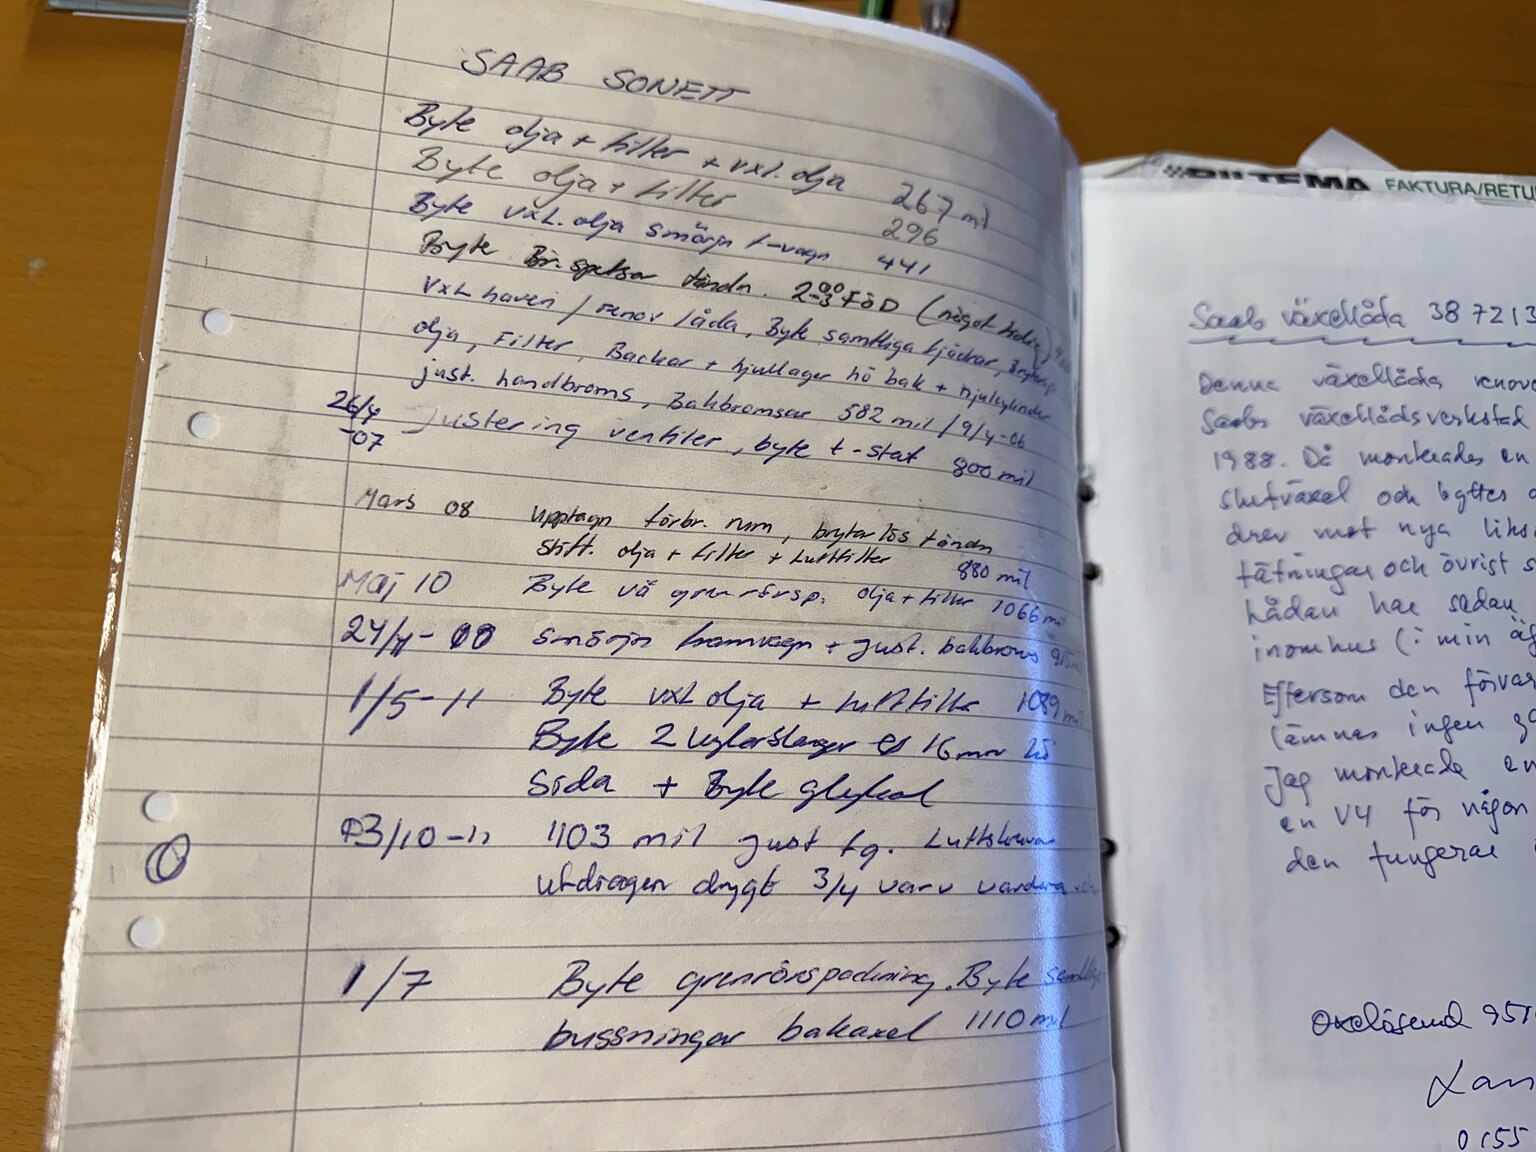 SAAB SONETT
Byte olja + filter + vxl. olja 267 mil
Byte olja + filter 296
Byte vxl. olja smörjn f-vagn 441
Byte Br. spetsar tändn. FÖD (något tidig)
Vxl haveri / renov låda, Byte samtliga fjädrar,
olja, Filter, Backar + hjullager hö bak + hjulcylinder
just. handbroms, Bakbromsar 582 mil / 9/4-06
26/4 -07 Justering ventiler, byte t-stat 800 mil
Mars 08 upptagn förbr. rum, brytarlös tändn
stift. olja + filter + luftfilter 880 mil
Maj 10 Byte vä grenrörsp. olja + filter 1066 mil
24/4- smörjn framvagn + just. bakbroms
1/5-11 Byte vxl olja + luftfilter 1089 mil
Byte 2 kylarslangar 16 mm
Sida + Byte glykol
3/10-11 1103 mil just fg. Luftskruvar
utdragen drygt 3/4 varv vardera
1/7 Byte grenrörspackning. Byte samtliga
bussningar bakaxel 1110 mil
BILTEMA FAKTURA/RETU
Saab växellåda 387213
Denna växellåda renove
Saabs växellådsverkstad
1988. Då monterades en
slutväxel och byttes
drev mot nya liks
tätningar och övrigt s
Lådan har sedan
inomhus (i min äg
Eftersom den förvar
lämnas ingen ga
Jag monterade en
en V4 för någon
den fungerar
Oxelösund 951
Lars
0155